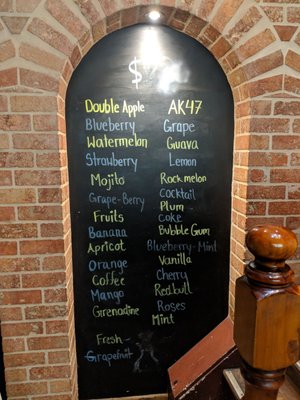 $
Double Apple
Blueberry
Watermelon
Strawberry
Mojito
Grape-Berry
Fruits
Banana
Apricot
Orange
Coffee
Mango
Grenadine
Fresh-
Grapefruit
AK47
Grape
Guava
Lemon
Rockmelon
Cocktail
Plum
Coke
Bubble Gum
Blueberry-Mint
Vanilla
Cherry
Redbull
Roses
Mint